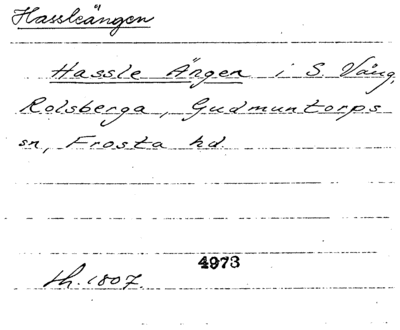 Hassleängen
Hassle Ängen i S. Vång,
Rolsberga, Gudmuntorps
sn, Frosta hd
4973
sh. 1807.